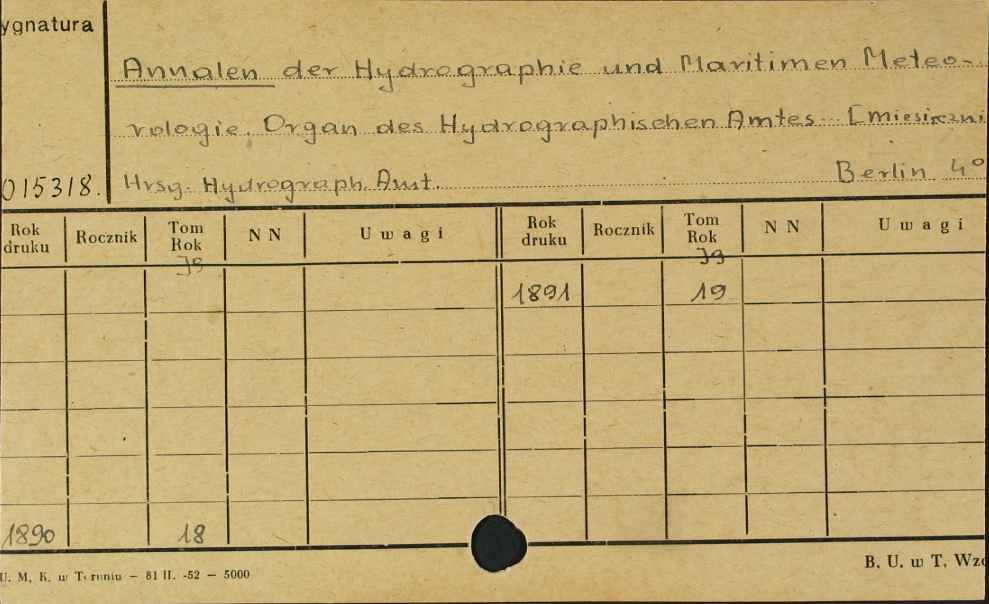 ygnatura
Annalen der Hydrographie und Maritimen Meteo-
rologie. Organ des Hydrographischen Amtes [miesięczni
015318. Hrsg. Hydrograph. Amt. Berlin 4°
Rok druku Rocznik Tom Rok NN Uwagi Rok druku Rocznik Tom Rok NN Uwagi
Jg Jg
1891 19
1890 18
U. M. K. w Toruniu — 81 II. -52 — 5000
B. U. w T. Wzó